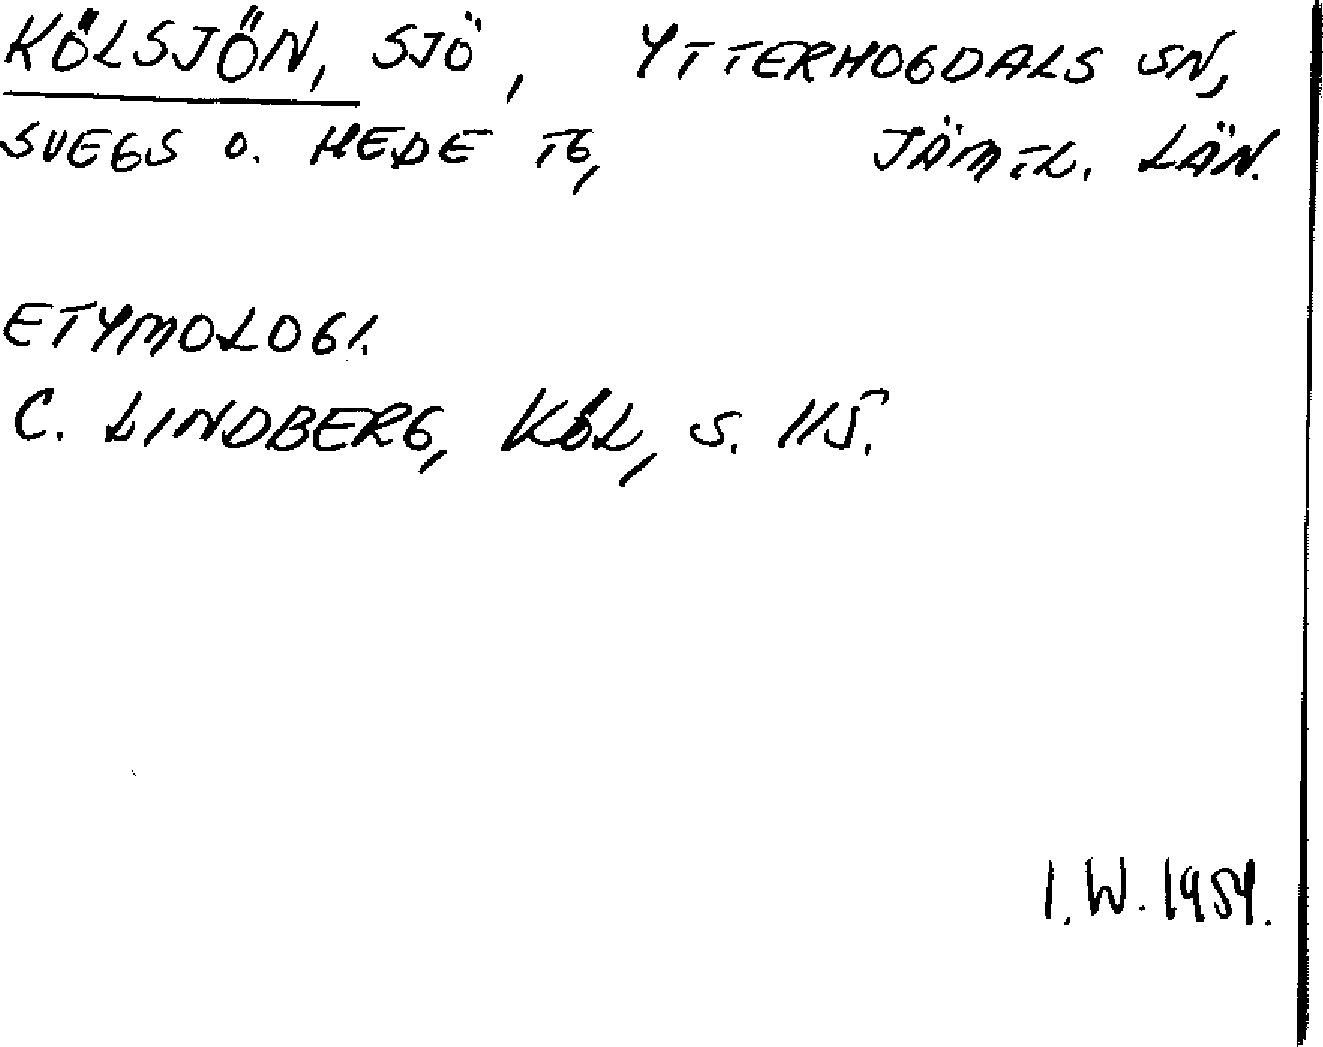 KÖLSJÖN, SJÖ, YTTERHOGDALS SN,
SVEGS O. HEDE TG, JÄMTL. LÄN.
ETYMOLOGI.
C. LINDBERG, KÖL, S. 115.
I. W. 1954.